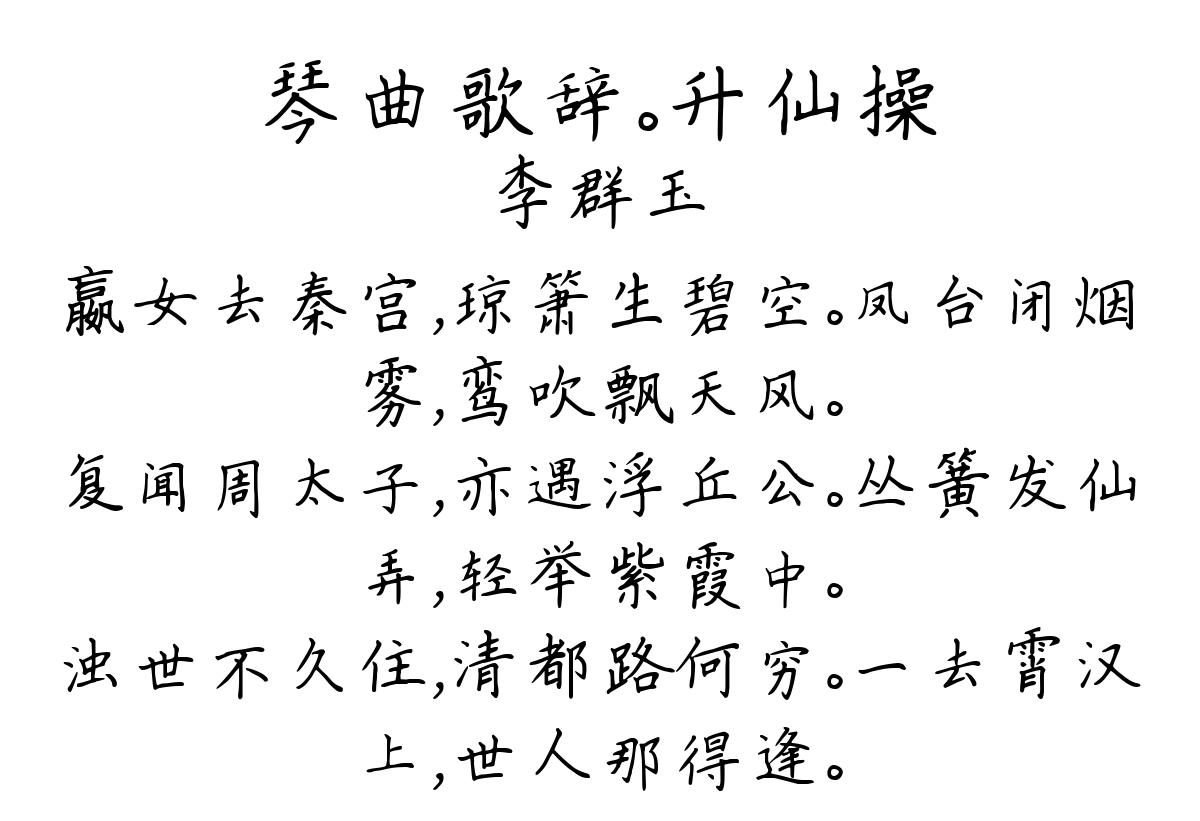 琴曲歌辞。升仙操
李群玉
嬴女去秦宫,琼箫生碧空。凤台闭烟
雾,鸾吹飘天风。
复闻周太子,亦遇浮丘公。丛簧发仙
弄,轻举紫霞中。
浊世不久住,清都路何穷。一去霄汉
上,世人那得逢。